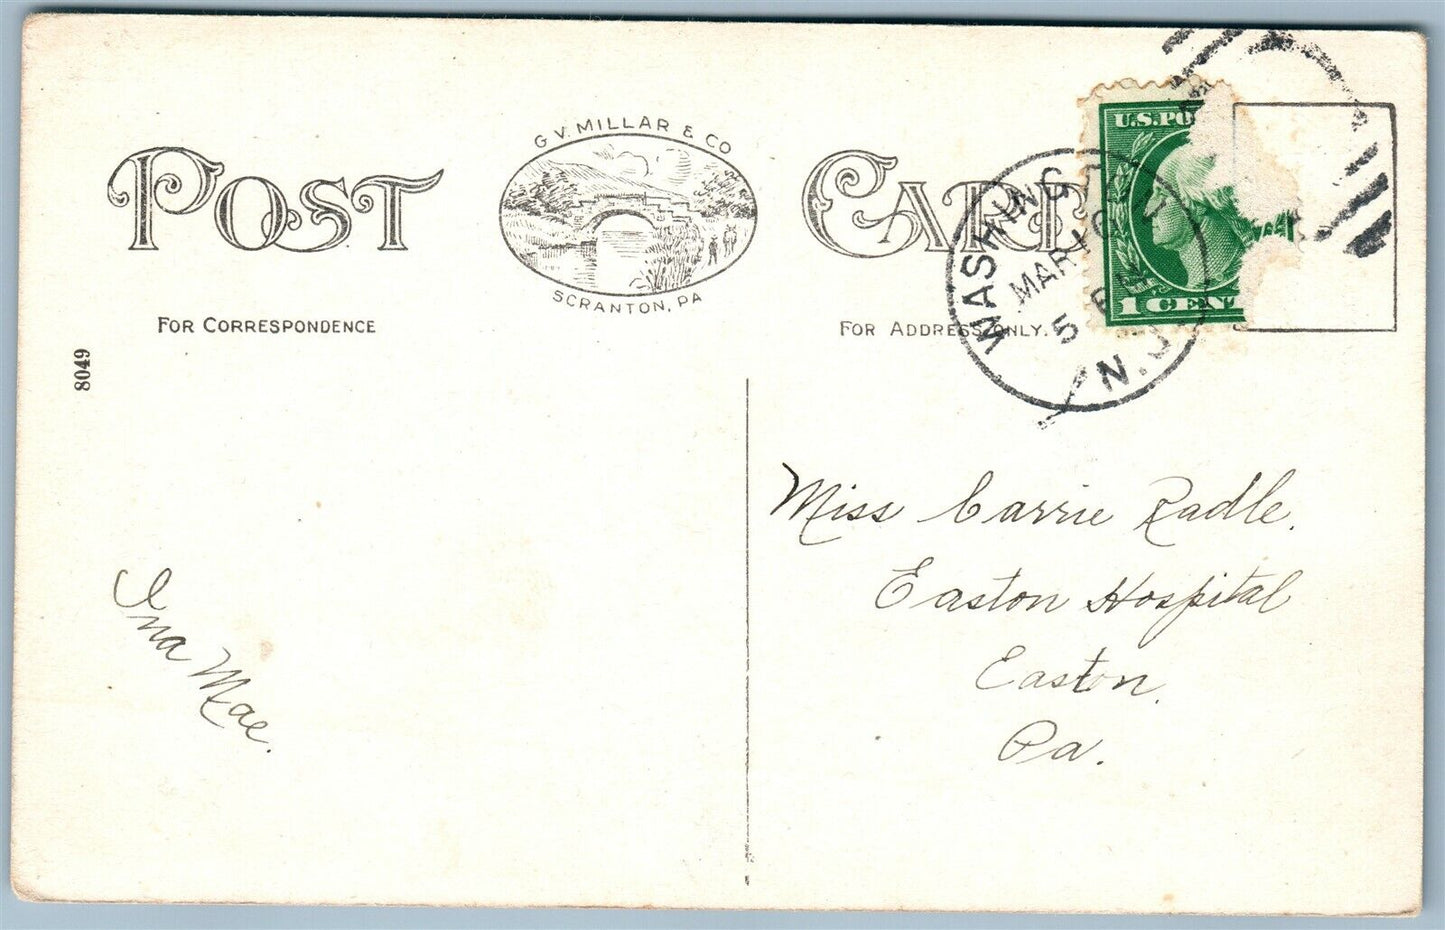 POST CARD
G. V. MILLAR & CO
SCRANTON, PA
FOR CORRESPONDENCE
FOR ADDRESS ONLY.
8049
U.S.PO
1 CENT
WASHINGTON
MAR 10
5 PM
N.J.
Miss Carrie Radle.
Easton Hospital
Easton.
Pa.
Ina Mae.